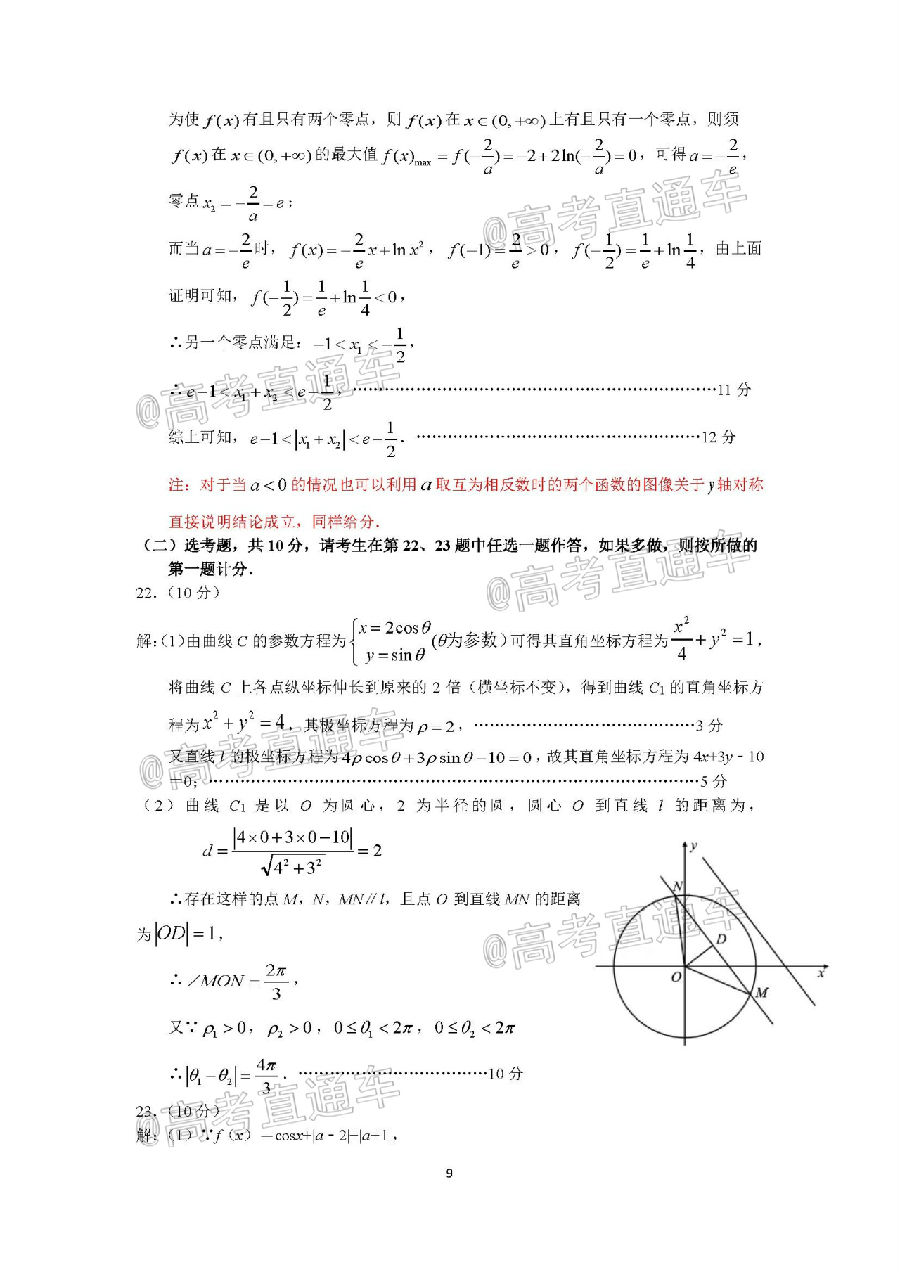 为使 f(x) 有且只有两个零点，则 f(x) 在 x∈(0, +∞) 上有且只有一个零点，则须
f(x) 在 x∈(0, +∞) 的最大值 f(x)max = f(-2/a) = -2+2ln(-2/a) = 0，可得 a = -2/e，
零点 x₂ = -2/a = e；
而当 a = -2/e 时，f(x) = -2/e x + ln x²，f(-1) = 2/e > 0，f(-1/2) = 1/e + ln 1/4，由上面
证明可知，f(-1/2) = 1/e + ln 1/4 < 0，
∴另一个零点满足：-1 < x₁ < -1/2，
∴ e-1 < x₁ + x₂ < e - 1/2，……………………………………………11 分
综上可知，e-1 < |x₁ + x₂| < e - 1/2．……………………………………12 分
注：对于当 a<0 的情况也可以利用 a 取互为相反数时的两个函数的图像关于 y 轴对称
直接说明结论成立，同样给分．
（二）选考题，共 10 分，请考生在第 22、23 题中任选一题作答，如果多做，则按所做的
第一题计分．
22．（10 分）
解：（1）由曲线 C 的参数方程为 { x = 2cosθ y = sinθ (θ为参数) 可得其直角坐标方程为 x²/4 + y² = 1，
将曲线 C 上各点纵坐标伸长到原来的 2 倍（横坐标不变），得到曲线 C₁ 的直角坐标方
程为 x² + y² = 4，其极坐标方程为 ρ = 2，……………………………3 分
又直线 l 的极坐标方程为 4ρcosθ + 3ρsinθ - 10 = 0，故其直角坐标方程为 4x+3y﹣10
=0；……………………………………………………………………5 分
（2）曲线 C₁ 是以 O 为圆心，2 为半径的圆，圆心 O 到直线 l 的距离为，
d = |4×0+3×0-10| / √(4²+3²) = 2
∴存在这样的点 M，N，MN∥l，且点 O 到直线 MN 的距离
为 |OD| = 1，
∴ ∠MON = 2π/3，
又∵ ρ₁ > 0，ρ₂ > 0，0 ≤ θ₁ < 2π，0 ≤ θ₂ < 2π
∴ |θ₁ - θ₂| = 4π/3．………………………………10 分
y
N
D
O
x
M
23．（10 分）
解：（1）∵f（x）=cosx+|a﹣2|+|a+1，
9
@高考直通车
@高考直通车
@高考直通车
@高考直通车
@高考直通车
@高考直通车